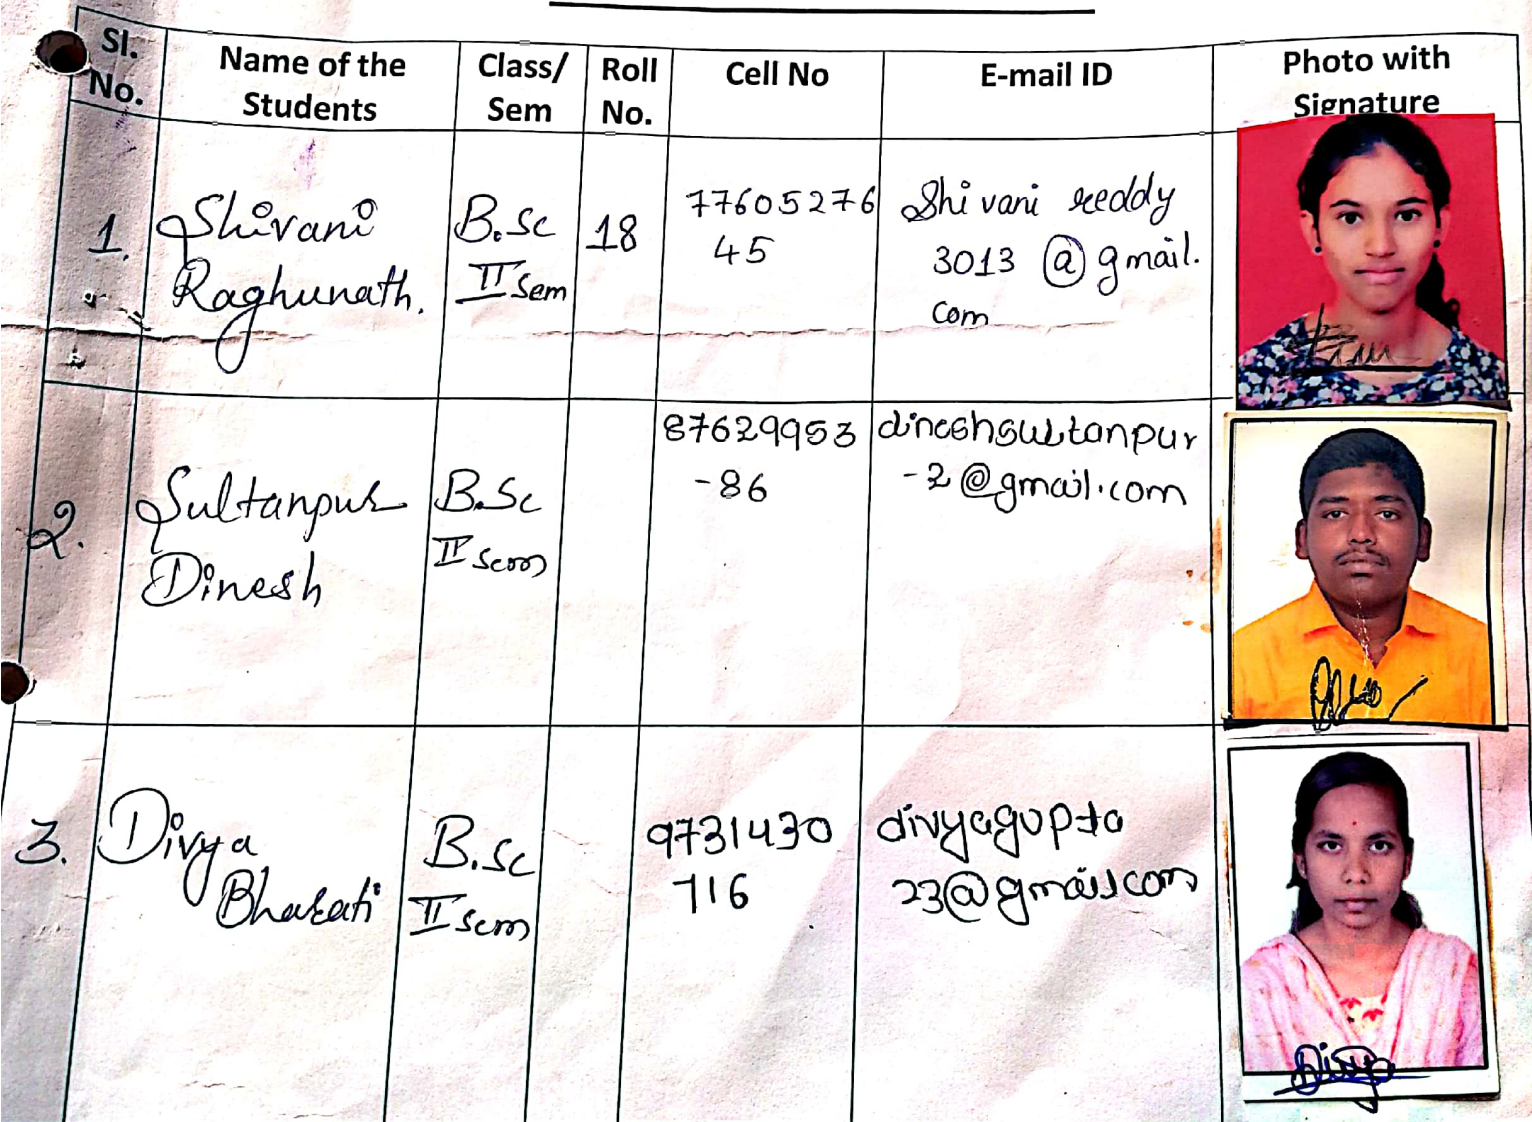 Sl. No. Name of the Students Class/ Sem Roll No. Cell No E-mail ID Photo with Signature
1. Shivani Raghunath. B.Sc II Sem 18 77605276 45 Shivani reddy 3013 @gmail. com
2. Sultanpur Dinesh B.Sc II Sem 87629953 -86 dineshsultanpur -2@gmail.com
3. Divya Bharati B.Sc II Sem 9731430 716 divyagupta 23@gmail.com
Divya